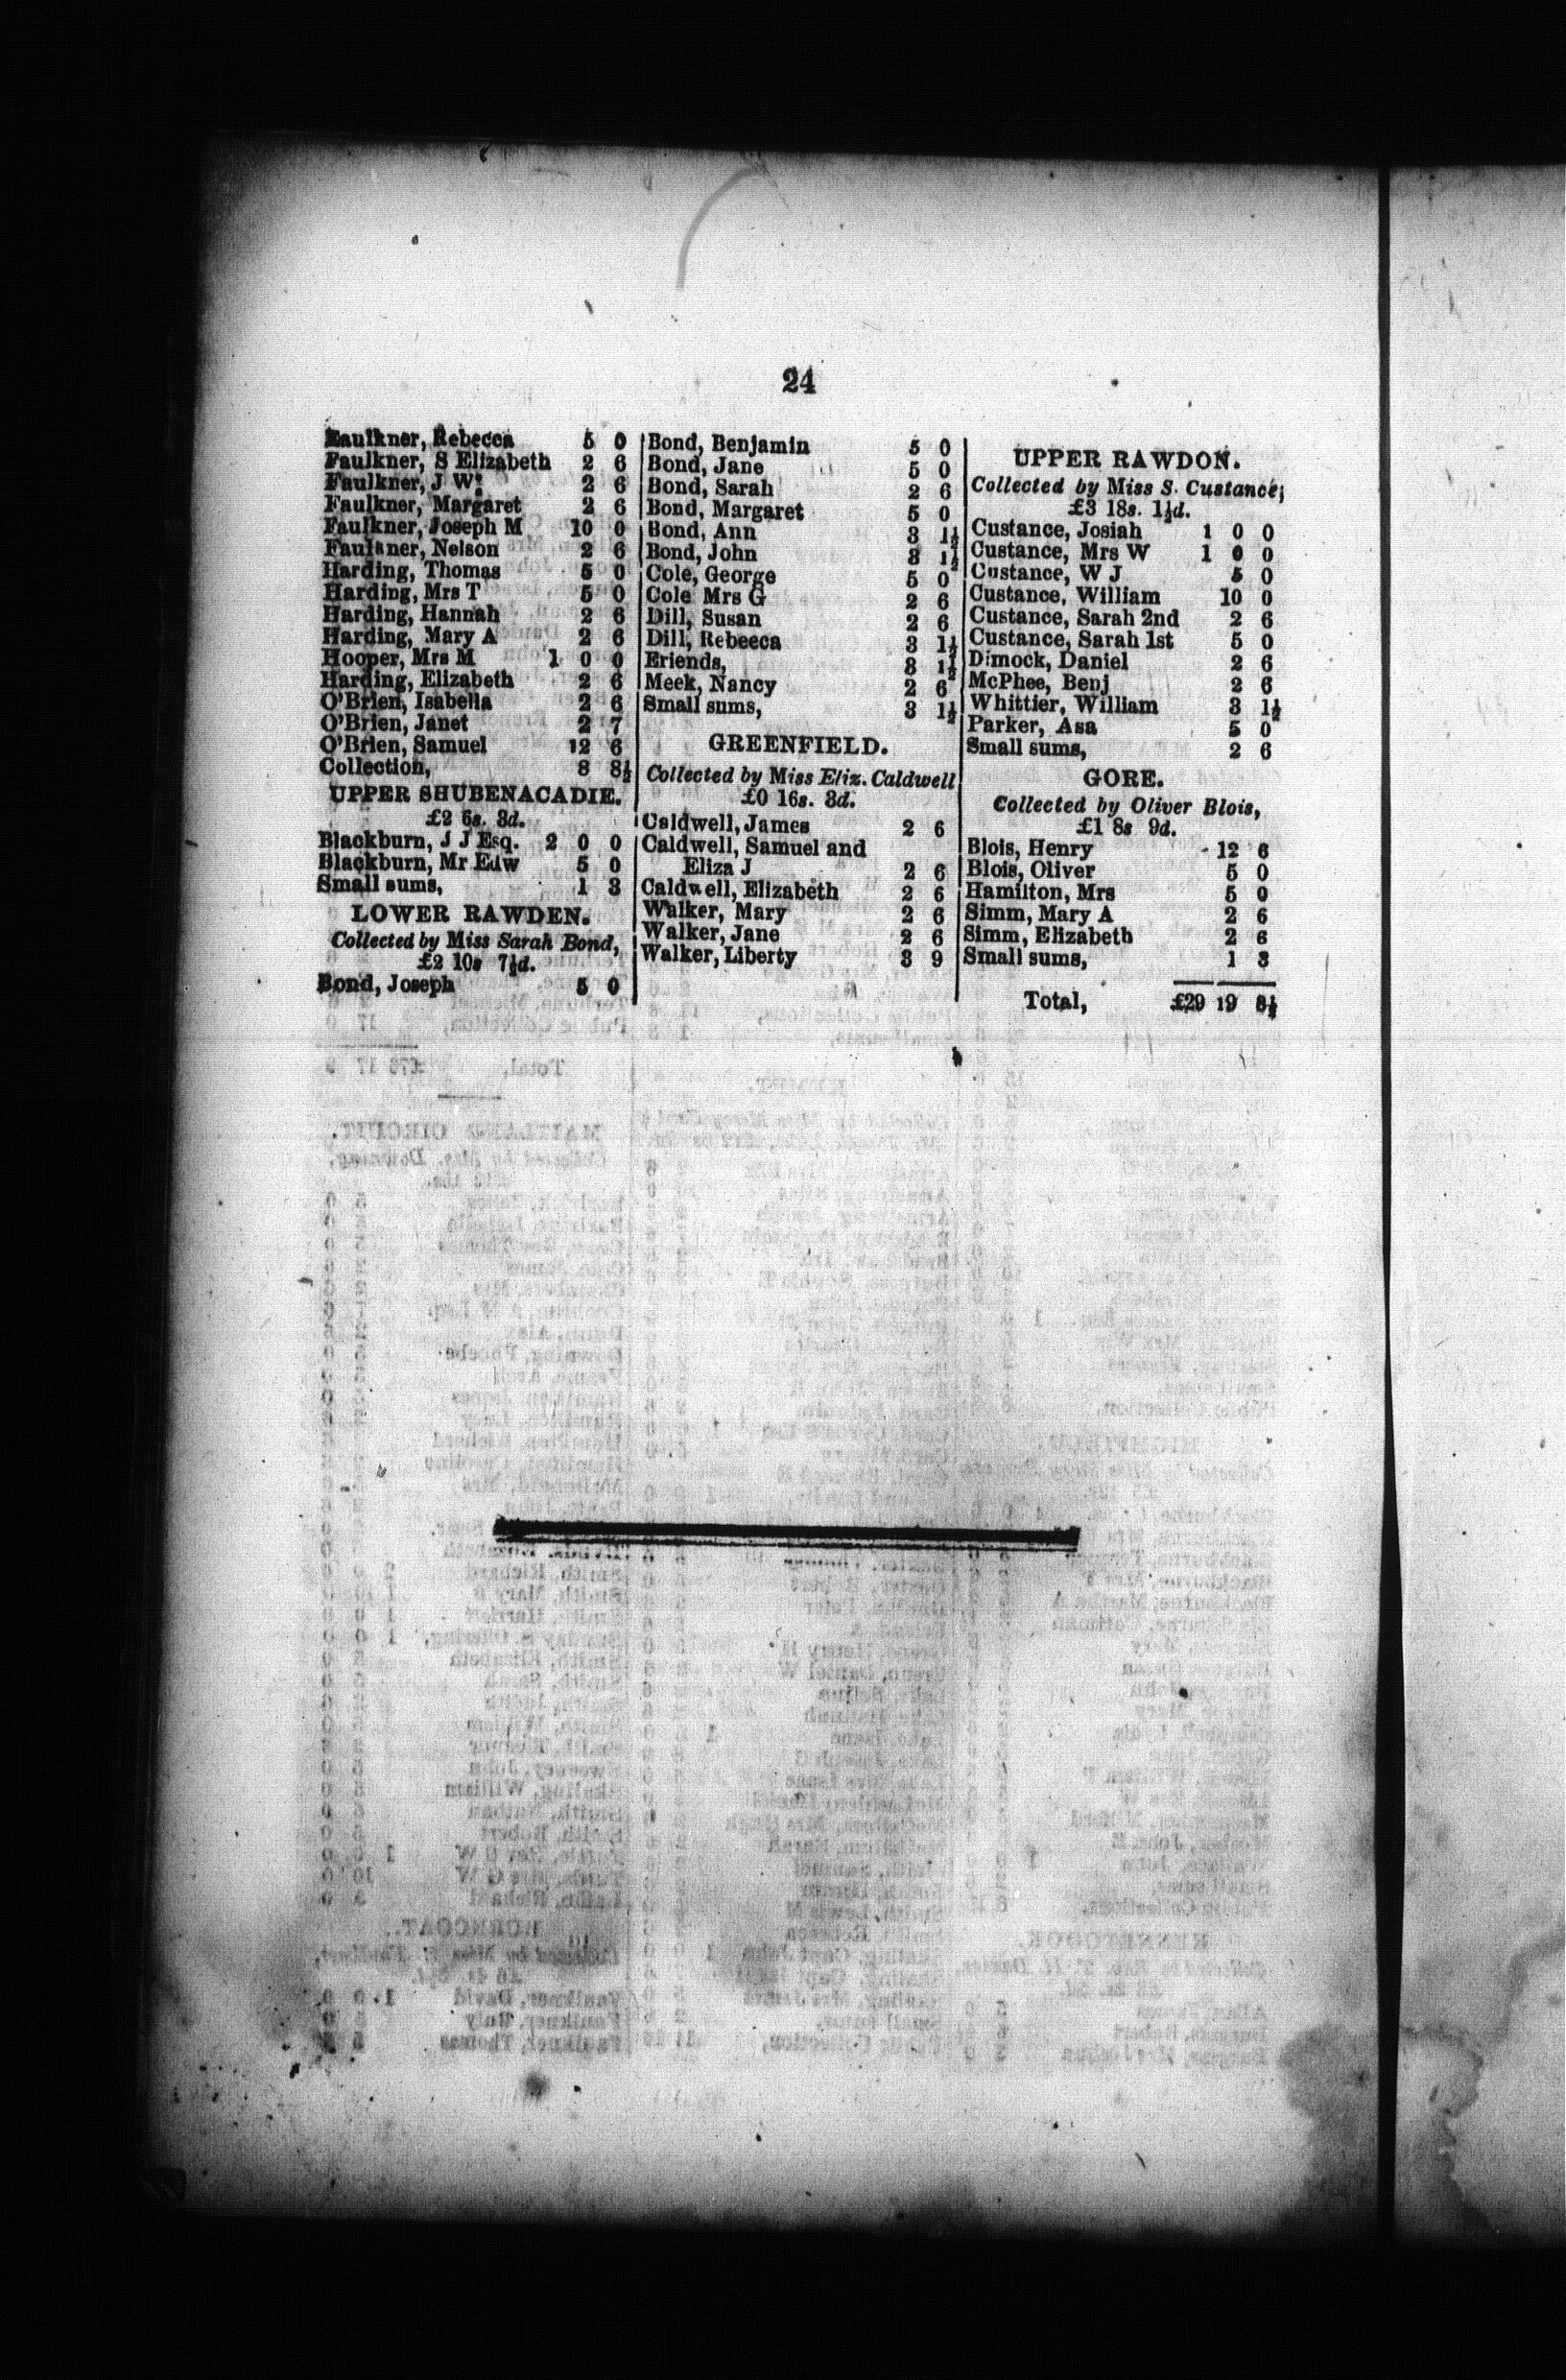 24
Faulkner, Rebecca 5 0
Faulkner, S Elizabeth 2 6
Faulkner, J W 2 6
Faulkner, Margaret 2 6
Faulkner, Joseph M 10 0
Faulkner, Nelson 2 6
Harding, Thomas 5 0
Harding, Mrs T 5 0
Harding, Hannah 2 6
Harding, Mary A 2 6
Hooper, Mrs M 1 0 0
Harding, Elizabeth 2 6
O'Brien, Isabella 2 6
O'Brien, Janet 2 7
O'Brien, Samuel 12 6
Collection, 8 8½
UPPER SHUBENACADIE.
£2 6s. 3d.
Blackburn, J J Esq. 2 0 0
Blackburn, Mr Edw 5 0
Small sums, 1 3
LOWER RAWDEN.
Collected by Miss Sarah Bond,
£2 10s 7½d.
Bond, Joseph 5 0
Bond, Benjamin 5 0
Bond, Jane 5 0
Bond, Sarah 2 6
Bond, Margaret 5 0
Bond, Ann 3 1½
Bond, John 3 1½
Cole, George 5 0
Cole Mrs G 2 6
Dill, Susan 2 6
Dill, Rebecca 3 1½
Friends, 3 1½
Meek, Nancy 2 6
Small sums, 3 1½
GREENFIELD.
Collected by Miss Eliz. Caldwell
£0 16s. 3d.
Caldwell, James 2 6
Caldwell, Samuel and
Eliza J 2 6
Caldwell, Elizabeth 2 6
Walker, Mary 2 6
Walker, Jane 2 6
Walker, Liberty 3 9
UPPER RAWDON.
Collected by Miss S. Custance;
£3 18s. 1½d.
Custance, Josiah 1 0 0
Custance, Mrs W 1 0 0
Custance, W J 5 0
Custance, William 10 0
Custance, Sarah 2nd 2 6
Custance, Sarah 1st 5 0
Dimock, Daniel 2 6
McPhee, Benj 2 6
Whittier, William 3 1½
Parker, Asa 5 0
Small sums, 2 6
GORE.
Collected by Oliver Blois,
£1 8s 9d.
Blois, Henry 12 6
Blois, Oliver 5 0
Hamilton, Mrs 5 0
Simm, Mary A 2 6
Simm, Elizabeth 2 6
Small sums, 1 3
Total, £29 19 8½